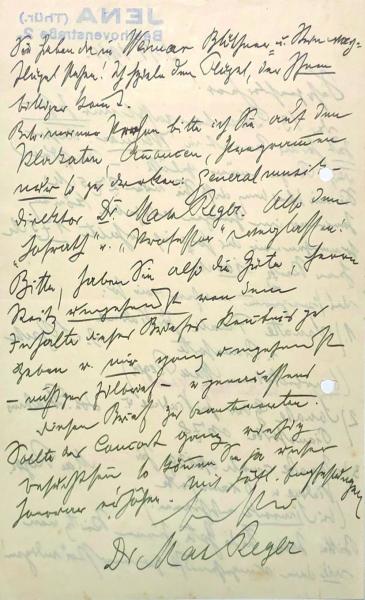 JENA (Thür.)
Beethovenstraße 2
Sie haben da in Weimar Blüthner u. Steinweg-
Flügel stehen! Ich spiele den Flügel, der Ihnen
billiger kommt.
Betr. meiner Person bitte ich Sie auf den
Plakaten, Annoncen, Programmen
nur so zu drucken: Generalmusik-
direktor Dr. Max Reger. Also den
"Hofrath" u. "Professor" weglassen!
Bitte, haben Sie also die Güte, Herrn
umgehendst von dem
Inhalte dieses Briefes Kenntnis zu
geben u. mir ganz umgehendst
diesen Brief zu beantworten.
Sollte das Concert ganz riesig
so können Sie ja unser
Honorar erhöhen. Mit höfl. Empfehlungen
Dr Max Reger